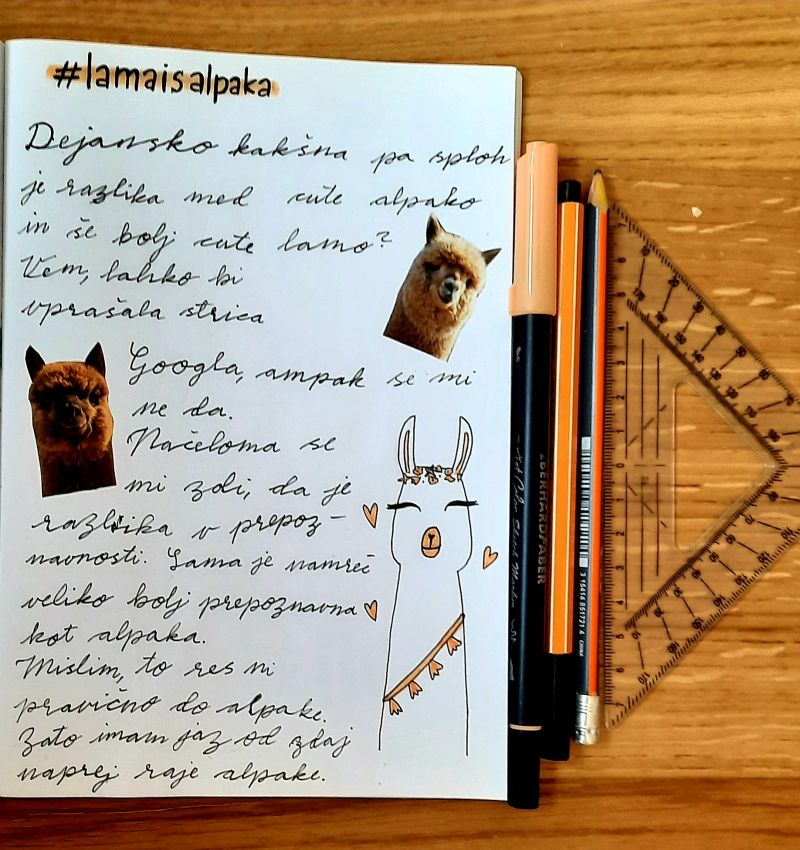 #lamaisalpaka
Dejansko kakšna pa sploh
je razlika med cute alpako
in še bolj cute lamo?
Vem, lahko bi
vprašala strica
Googla, ampak se mi
ne da.
Načeloma se
mi zdi, da je
razlika v prepoz-
navnosti. Lama je namreč
veliko bolj prepoznavna
kot alpaka.
Mislim, to res ni
pravično do alpake.
Zato imam jaz od zdaj
naprej raje alpake.
EBERHARD FABER